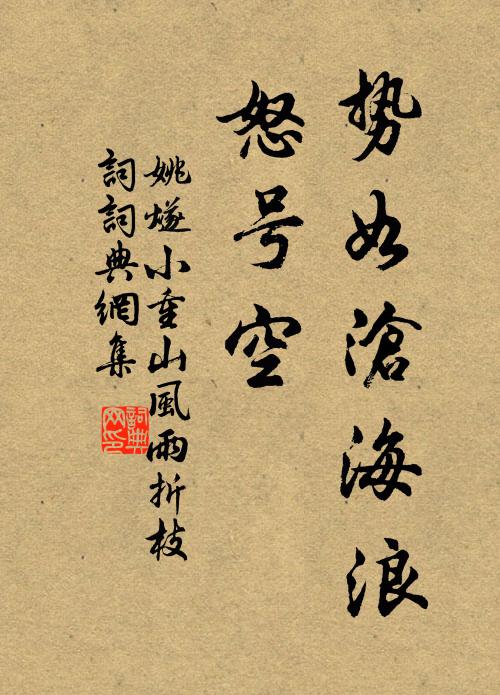 势如滄海浪
怒号空
姚燧小重山風雨折枝
詞詞典網集
詞典网印